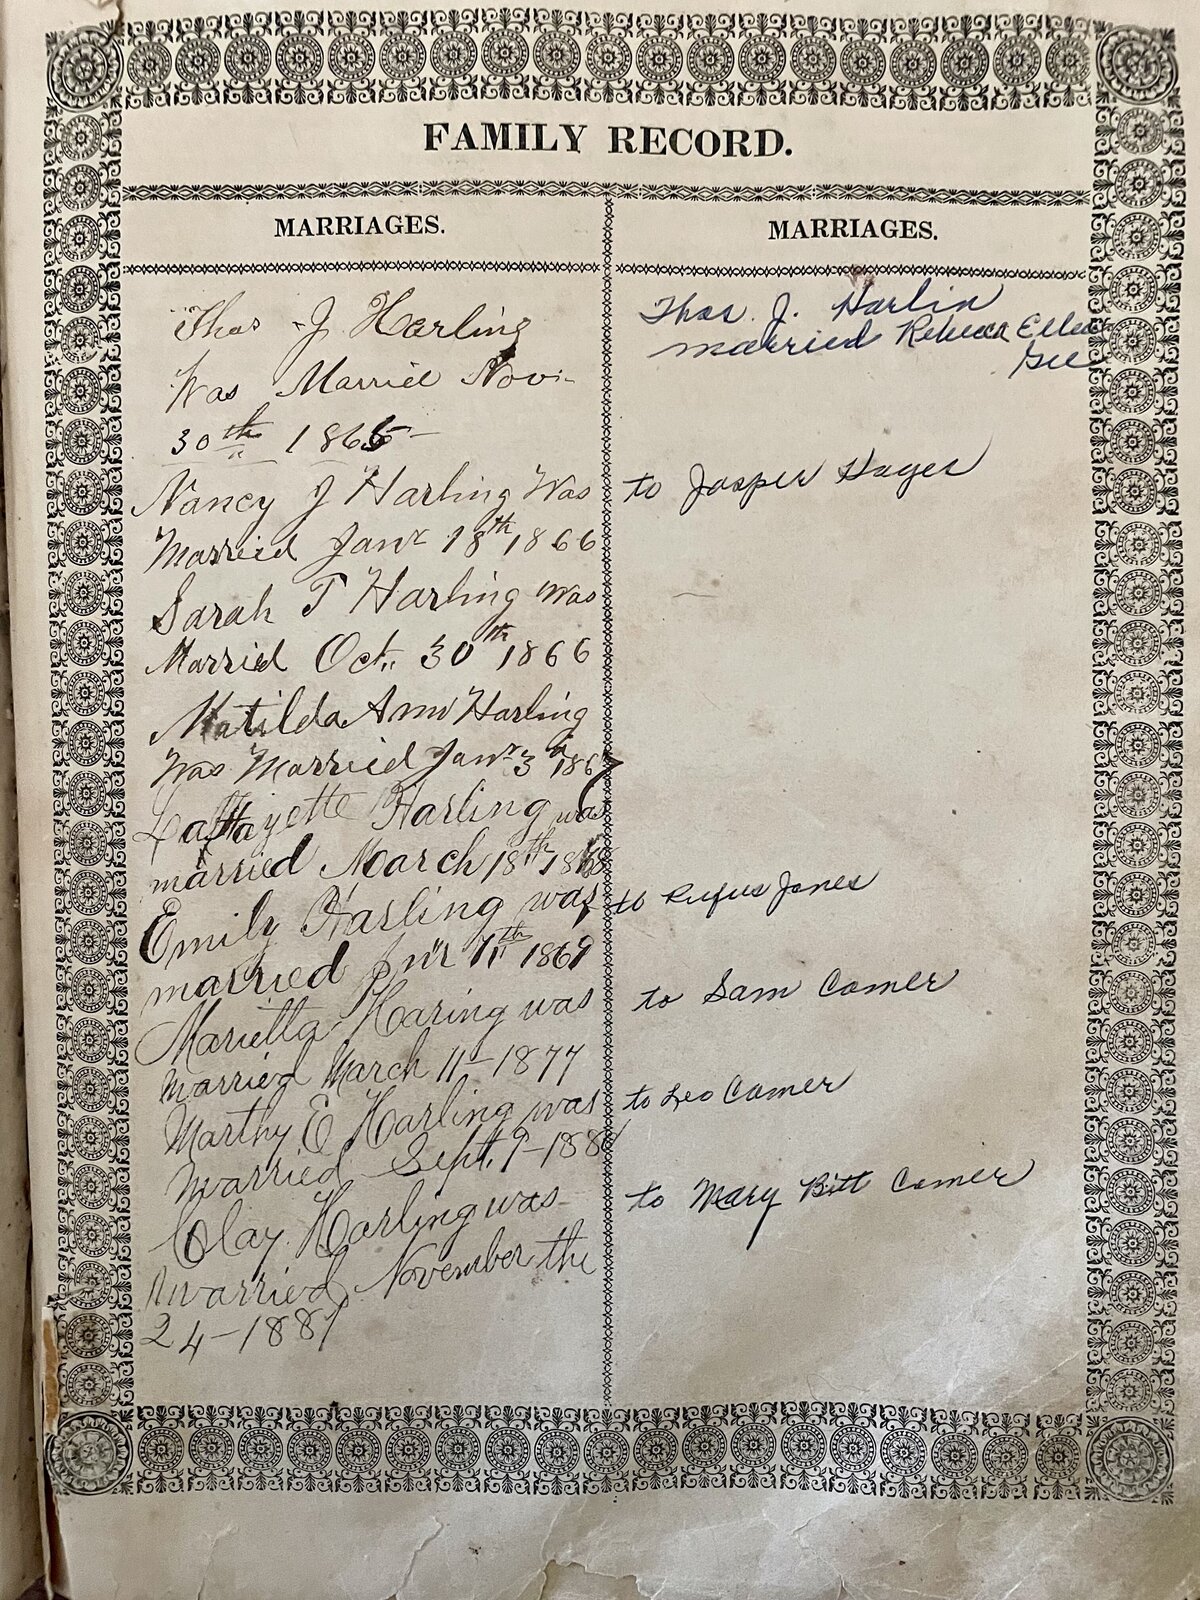 FAMILY RECORD.
MARRIAGES.
Thos J Harling
Was Married Nov.
30th 1865
Nancy J Harling Was
Married Janr 18th 1866
Sarah T Harling Was
Married Oct. 30th 1866
Matilda Ann Harling
Was Married Janr 3 1867
Laffayette Harling was
married March 18th 1868
Emily Harling was
married 1869
Marietta Haring was
married March 11-1877
Marthy E Harling was
married Sept. 9-188
Clay Harling was
married November the
24-1887
MARRIAGES.
Thos. J. Harlin
married Rebecca Ellen
Gee
to Jasper Hayes
to Rufus Jones
to Sam Comer
to Leo Comer
to Mary Bitt Comer